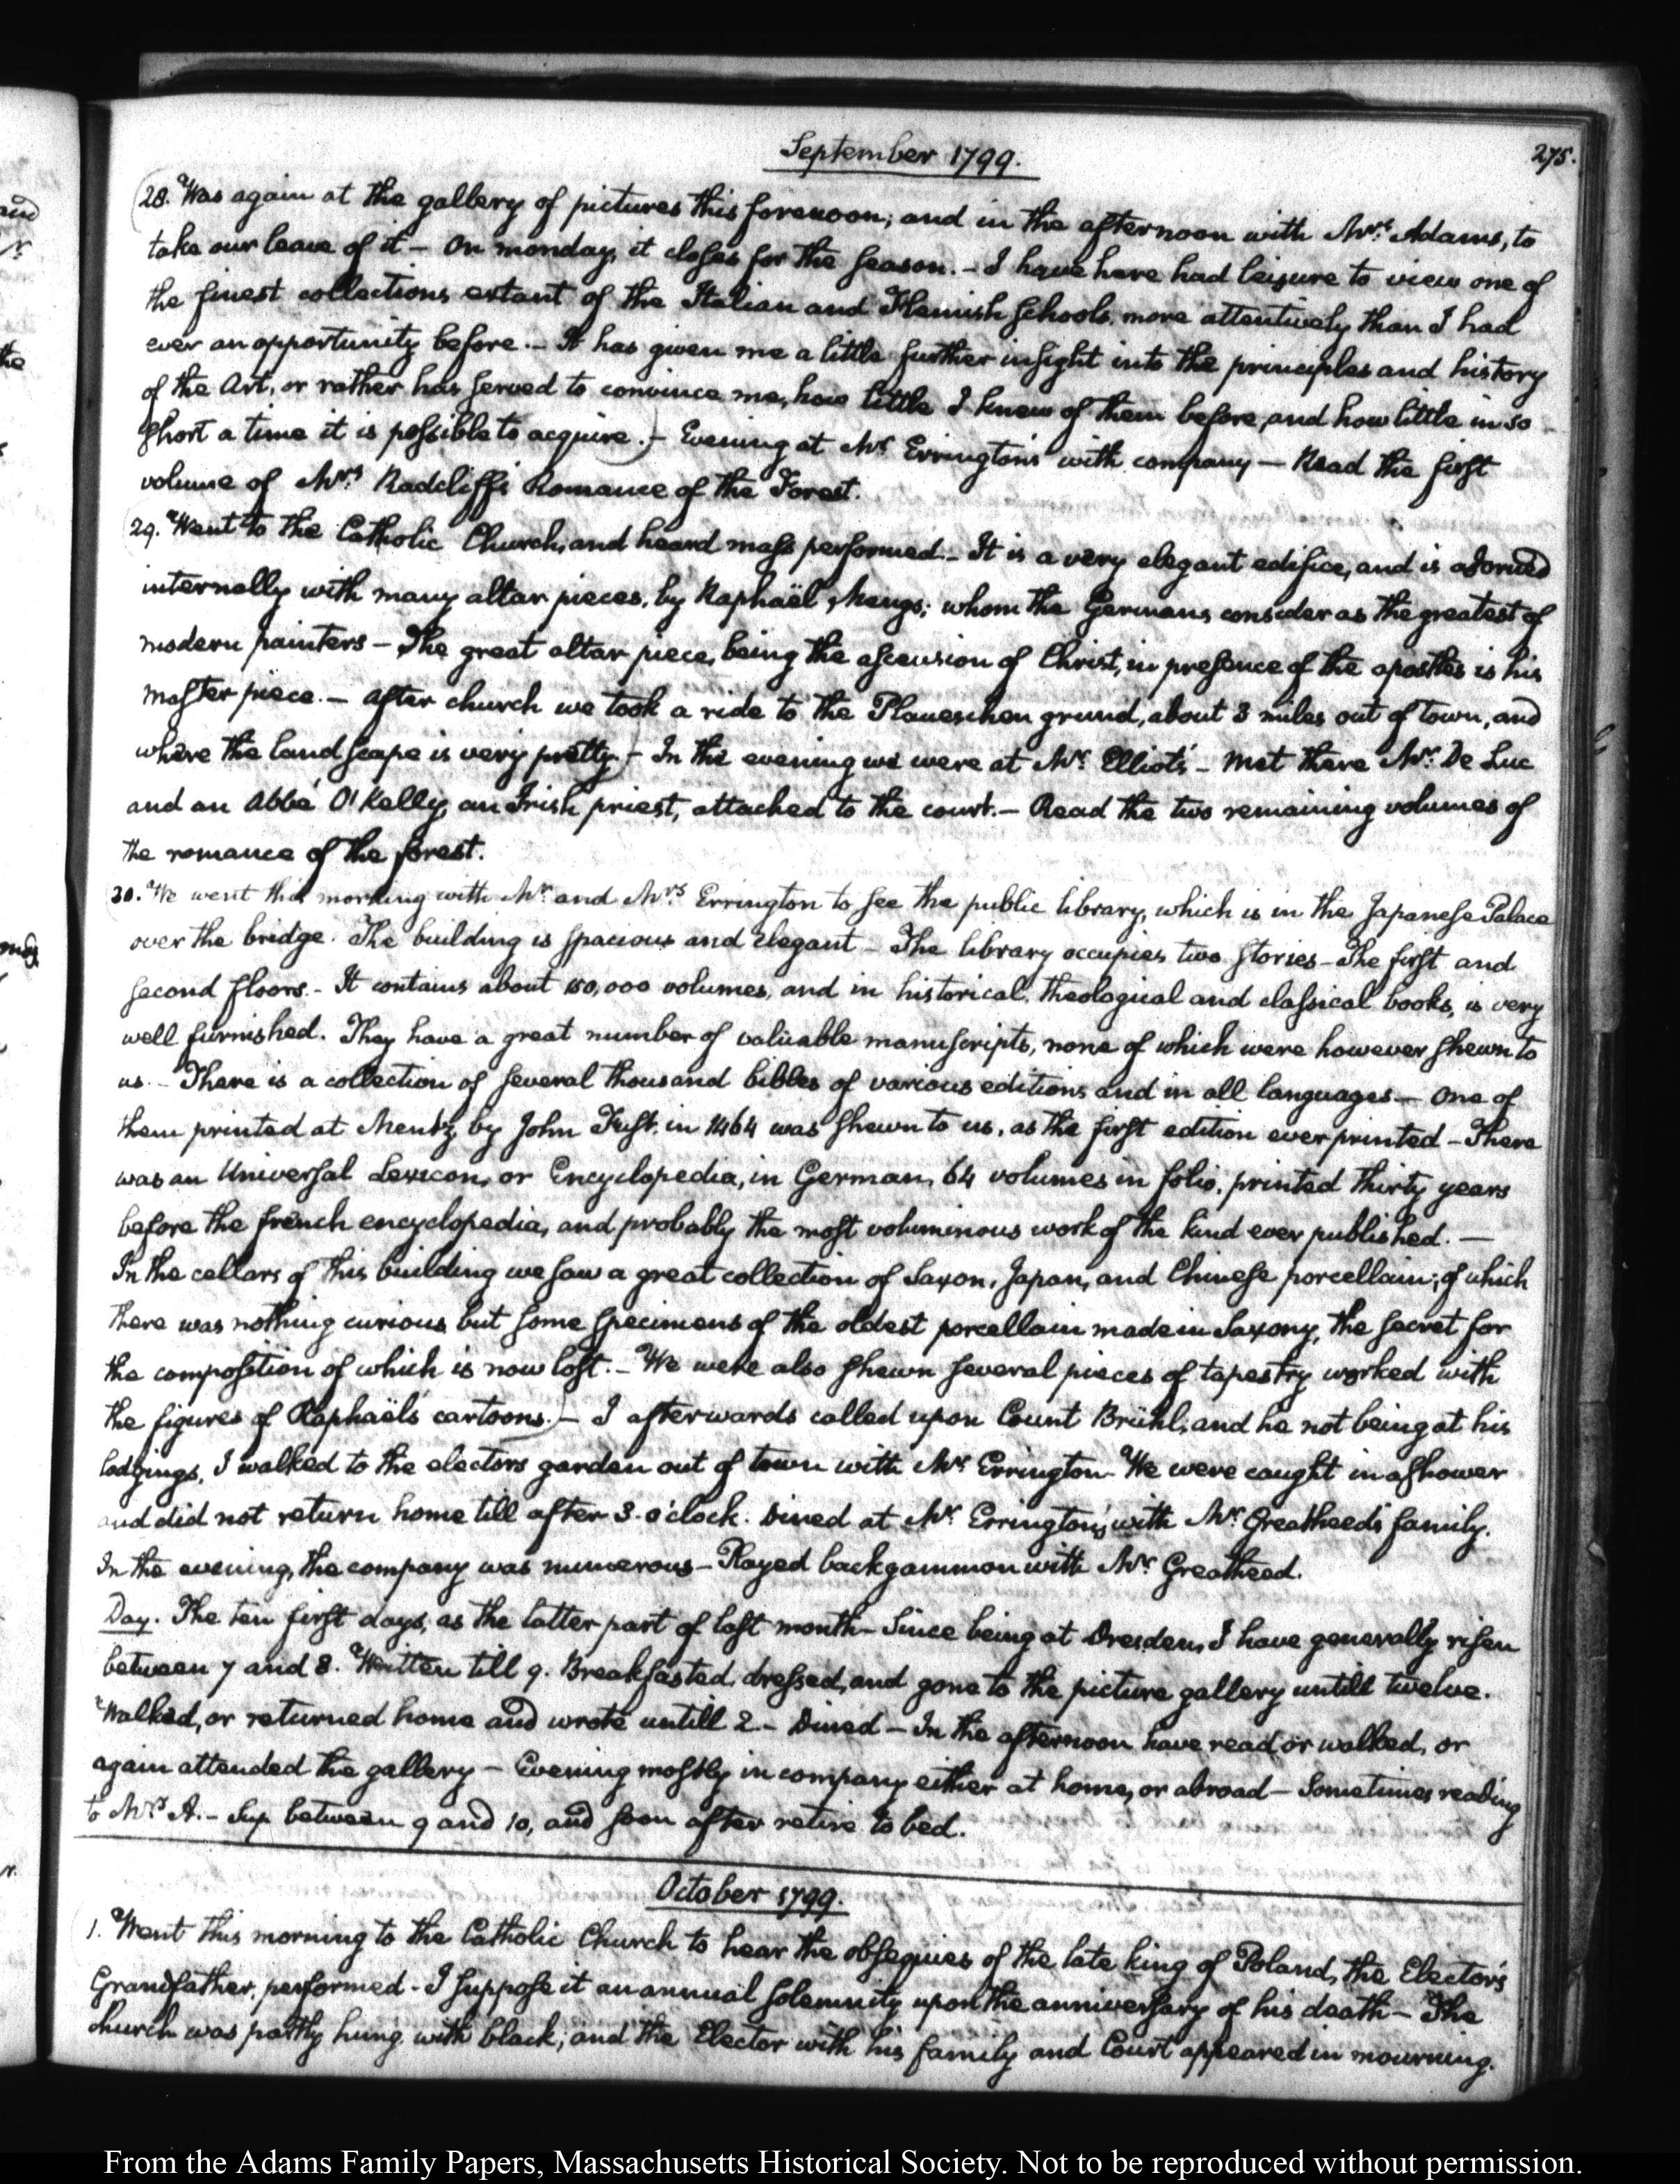 September 1799.
275.
28. Was again at the gallery of pictures this forenoon; and in the afternoon with Mrs. Adams, to
take our leave of it - On monday, it closes for the season. - I have here had leisure to view one of
the finest collections extant of the Italian and Flemish Schools, more attentively than I had
ever an opportunity before. - It has given me a little further insight into the principles and history
of the Art, or rather has served to convince me, how little I knew of them before, and how little in so
short a time it is possible to acquire.) - Evening at Mr. Errington's with company — Read the first
volume of Mrs. Radcliff's Romance of the Forest.
29. Went to the Catholic Church, and heard mass performed - It is a very elegant edifice, and is adorned
internally with many altar pieces, by Raphaël Mengs; whom the Germans consider as the greatest of
modern painters - The great altar piece, being the ascension of Christ, in presence of the apostles is his
master piece. - After church we took a ride to the Plaueschen grund, about 3 miles out of town, and
where the landscape is very pretty) - In the evening we were at Mr. Elliot's - Met there Mr. De Luc
and an Abbé O'Kelly, an Irish priest, attached to the court. - Read the two remaining volumes of
the romance of the forest.
30. We went this morning with Mr. and Mrs. Errington to see the public library, which is in the Japanese Palace
over the bridge. The building is spacious and elegant - The library occupies two stories - The first and
second floors. - It contains about 150,000 volumes, and in historical, theological and classical books, is very
well furnished. They have a great number of valuable manuscripts, none of which were however shewn to
us. - There is a collection of several thousand bibles of various editions and in all languages - One of
them printed at Mentz, by John Fust, in 1464 was shewn to us, as the first edition ever printed - There
was an Universal Lexicon, or Encyclopedia, in German, 64 volumes in folio, printed thirty years
before the french encyclopedia, and probably the most voluminous work of the kind ever published. —
In the cellars of this building we saw a great collection of Saxon, Japan, and Chinese porcellain; of which
there was nothing curious but some specimens of the oldest porcellain made in Saxony, the secret for
the composition of which is now lost. - We were also shewn several pieces of tapestry worked with
the figures of Raphaël's cartoons.) - I afterwards called upon Count Brühl, and he not being at his
lodgings, I walked to the electors garden out of town with Mr. Errington - We were caught in a shower
and did not return home till after 3. o'clock. Dined at Mr. Errington's, with Mr. Greatheed's family.
In the evening, the company was numerous - Played backgammon with Mr. Greatheed.
Day. The ten first days, as the latter part of last month - Since being at Dresden, I have generally risen
between 7 and 8. Written till 9. Breakfasted, dressed, and gone to the picture gallery untill twelve.
Walked, or returned home and wrote untill 2 - Dined - In the afternoon have read or walked, or
again attended the gallery - Evening mostly in company either at home, or abroad - Sometimes reading
to Mrs. A. - Sup between 9 and 10, and soon after retire to bed.
October 1799.
1. Went this morning to the Catholic Church to hear the obsequies of the late king of Poland, the Elector's
Grandfather, performed - I suppose it an annual solemnity upon the anniversary of his death - The
church was partly hung with black; and the Elector with his family and Court appeared in mourning.
From the Adams Family Papers, Massachusetts Historical Society. Not to be reproduced without permission.